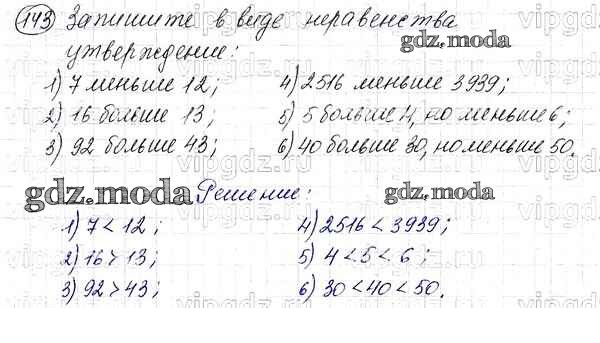 143 Запишите в виде неравенства
утверждение:
gdz.moda
1) 7 меньше 12; 4) 2516 меньше 3939;
2) 16 больше 13; 5) 5 больше 4, но меньше 6;
3) 92 больше 43; 6) 40 больше 30, но меньше 50.
gdz.moda Решение: gdz.moda
1) 7 < 12; 4) 2516 < 3939;
2) 16 > 13; 5) 4 < 5 < 6;
3) 92 > 43; 6) 30 < 40 < 50.